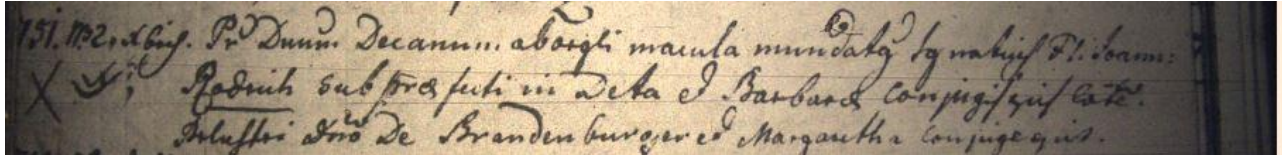 151. Pr Dnum Decanum ab origli macula mundaty Ignatius fl. Joann:
Rodnich sub præfecti in Deta et Barbaræ Conjugis ejus Cath.
Dno De Brandenburger et Margaretha Conjuge ejus.